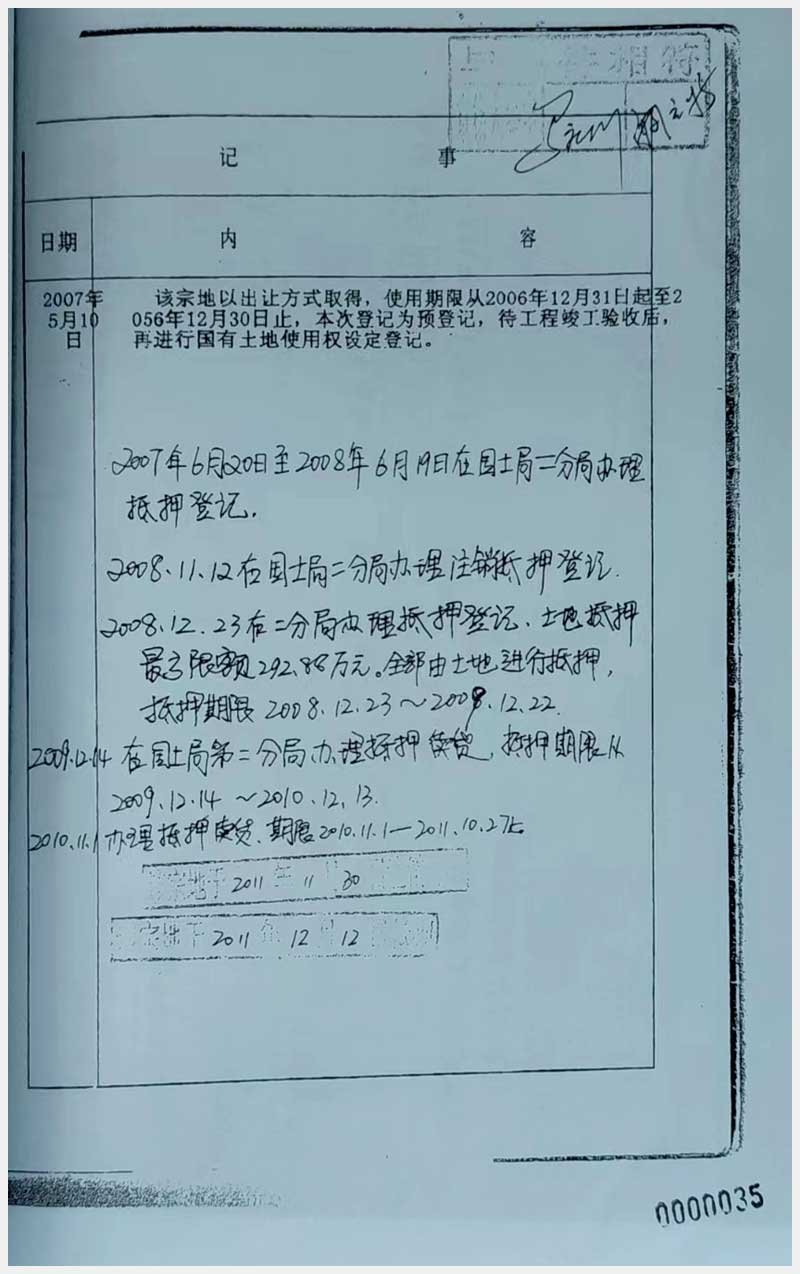 相符
记 事
日期 内 容
2007年5月10日
该宗地以出让方式取得，使用期限从2006年12月31日起至2
056年12月30日止，本次登记为预登记，待工程竣工验收后，
再进行国有土地使用权设定登记。
2007年6月20日至2008年6月19日在国土局二分局办理
抵押登记.
2008.11.12在国土局二分局办理注销抵押登记.
2008.12.23在二分局办理抵押登记、土地抵押
最高限额292.88万元。全部由土地进行抵押,
抵押期限 2008.12.23～2009.12.22.
2009.12.14 在国土局第二分局办理抵押续贷,抵押期限从
2009.12.14～2010.12.13.
2010.11.1办理抵押续贷、期限2010.11.1—2011.10.27止
宗地于 2011 年 11 30
宗地于 2011 年 12 月 12
0000035